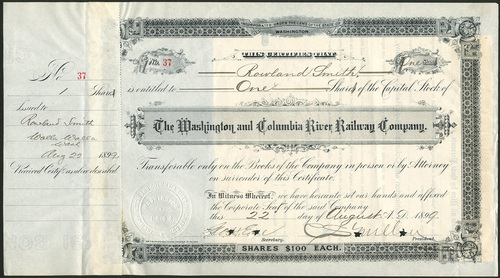 No. 37
1 Shares
Issued to
Rowland Smith
Walla Walla
Wash
Aug 22 1892
WASHINGTON
THIS CERTIFIES THAT
No. 37
One
Rowland Smith
is entitled to One Shares of the Capital Stock of
The Washington and Columbia River Railway Company.
Transferable only on the Books of the Company in person or by Attorney
on surrender of this Certificate.
In Witness Whereof, we have hereunto set our hands and affixed
the Corporate Seal of the said Company
this 22 day of August A.D. 1892
Secretary. President.
SHARES $100 EACH.